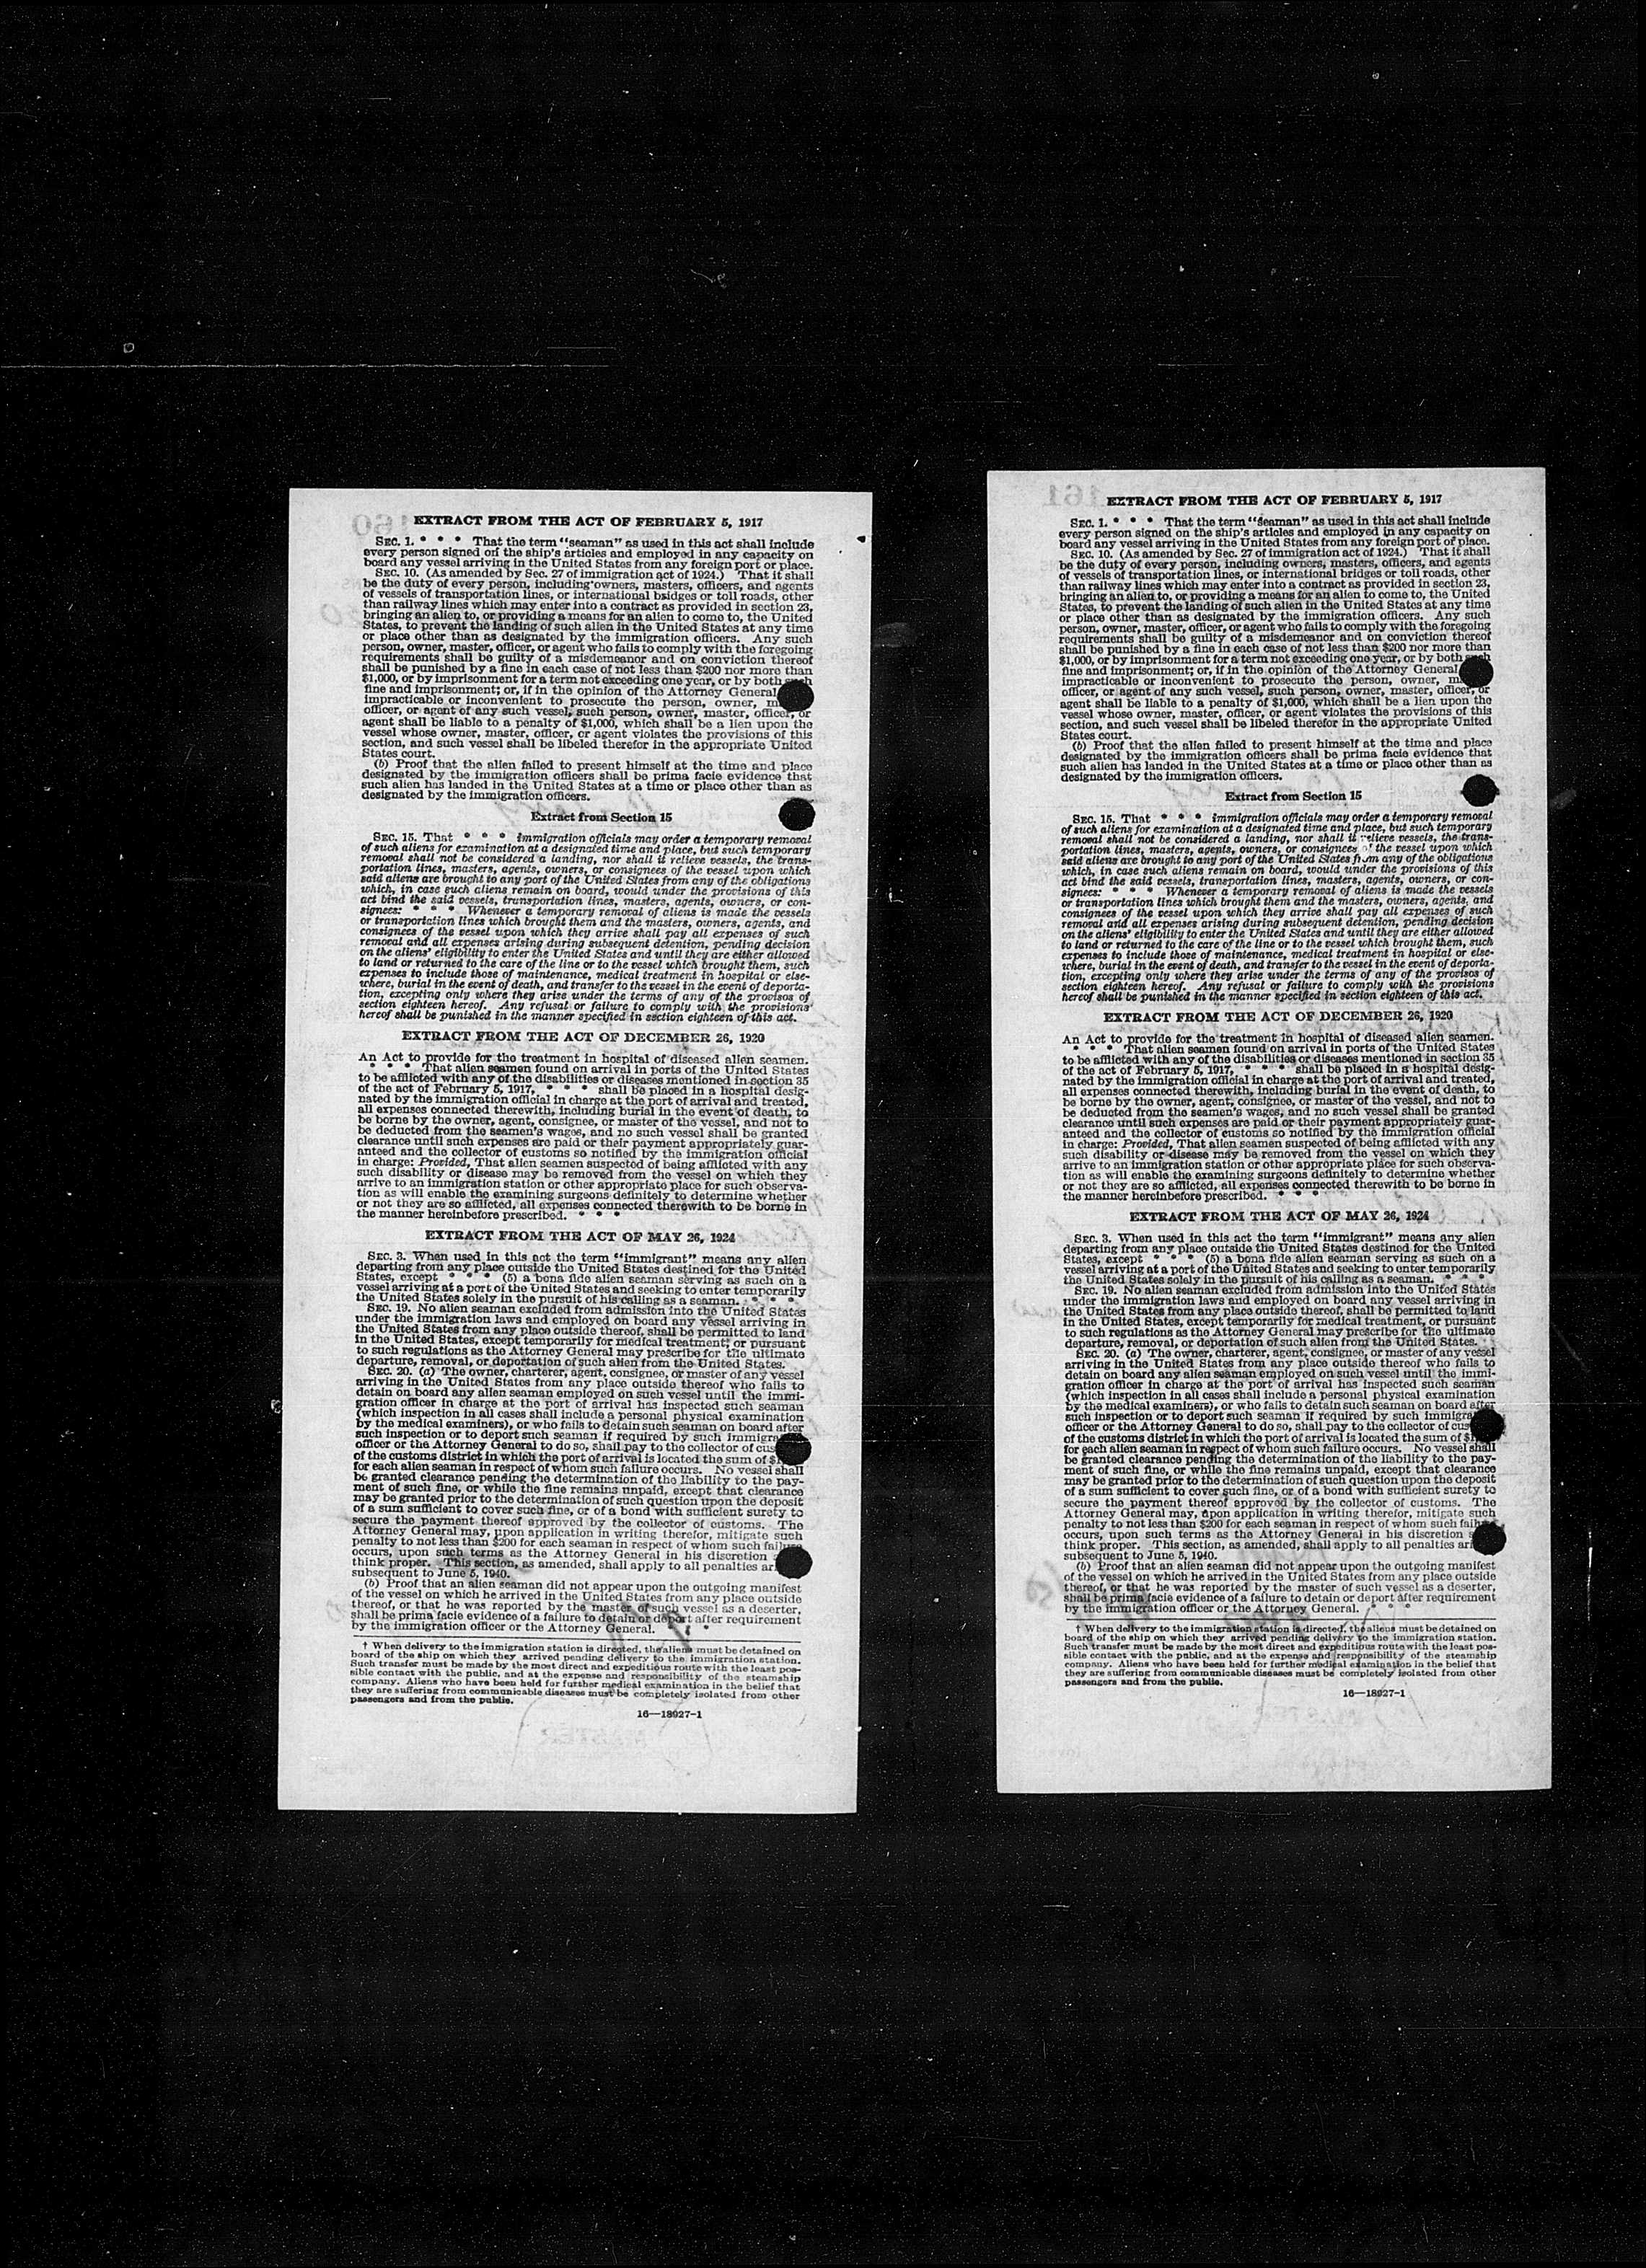 EXTRACT FROM THE ACT OF FEBRUARY 5, 1917
SEC. 1. * * * That the term "seaman" as used in this act shall include
every person signed on the ship's articles and employed in any capacity on
board any vessel arriving in the United States from any foreign port or place.
SEC. 10. (As amended by Sec. 27 of immigration act of 1924.) That it shall
be the duty of every person, including owners, masters, officers, and agents
of vessels of transportation lines, or international bridges or toll roads, other
than railway lines which may enter into a contract as provided in section 23,
bringing an alien to, or providing a means for an alien to come to, the United
States, to prevent the landing of such alien in the United States at any time
or place other than as designated by the immigration officers. Any such
person, owner, master, officer, or agent who fails to comply with the foregoing
requirements shall be guilty of a misdemeanor and on conviction thereof
shall be punished by a fine in each case of not less than $200 nor more than
$1,000, or by imprisonment for a term not exceeding one year, or by both such
fine and imprisonment; or, if in the opinion of the Attorney General
impracticable or inconvenient to prosecute the person, owner,
officer, or agent of any such vessel, such person, owner, master, officer, or
agent shall be liable to a penalty of $1,000, which shall be a lien upon the
vessel whose owner, master, officer, or agent violates the provisions of this
section, and such vessel shall be libeled therefor in the appropriate United
States court.
(b) Proof that the alien failed to present himself at the time and place
designated by the immigration officers shall be prima facie evidence that
such alien has landed in the United States at a time or place other than as
designated by the immigration officers.
Extract from Section 15
SEC. 15. That * * * immigration officials may order a temporary removal
of such aliens for examination at a designated time and place, but such temporary
removal shall not be considered a landing, nor shall it relieve vessels, the trans-
portation lines, masters, agents, owners, or consignees of the vessel upon which
said aliens are brought to any port of the United States from any of the obligations
which, in case such aliens remain on board, would under the provisions of this
act bind the said vessels, transportation lines, masters, agents, owners, or con-
signees: * * * Whenever a temporary removal of aliens is made the vessels
or transportation lines which brought them and the masters, owners, agents, and
consignees of the vessel upon which they arrive shall pay all expenses of such
removal and all expenses arising during subsequent detention, pending decision
on the aliens' eligibility to enter the United States and until they are either allowed
to land or returned to the care of the line or to the vessel which brought them, such
expenses to include those of maintenance, medical treatment in hospital or else-
where, burial in the event of death, and transfer to the vessel in the event of deporta-
tion, excepting only where they arise under the terms of any of the provisos of
section eighteen hereof. Any refusal or failure to comply with the provisions
hereof shall be punished in the manner specified in section eighteen of this act.
EXTRACT FROM THE ACT OF DECEMBER 26, 1920
An Act to provide for the treatment in hospital of diseased alien seamen.
* * * That alien seamen found on arrival in ports of the United States
to be afflicted with any of the disabilities or diseases mentioned in section 35
of the act of February 5, 1917, * * * shall be placed in a hospital desig-
nated by the immigration official in charge at the port of arrival and treated,
all expenses connected therewith, including burial in the event of death, to
be borne by the owner, agent, consignee, or master of the vessel, and not to
be deducted from the seamen's wages, and no such vessel shall be granted
clearance until such expenses are paid or their payment appropriately guar-
anteed and the collector of customs so notified by the immigration official
in charge: Provided, That alien seamen suspected of being afflicted with any
such disability or disease may be removed from the vessel on which they
arrive to an immigration station or other appropriate place for such observa-
tion as will enable the examining surgeons definitely to determine whether
or not they are so afflicted, all expenses connected therewith to be borne in
the manner hereinbefore prescribed. * * *
EXTRACT FROM THE ACT OF MAY 26, 1924
SEC. 3. When used in this act the term "immigrant" means any alien
departing from any place outside the United States destined for the United
States, except * * * (5) a bona fide alien seaman serving as such on a
vessel arriving at a port of the United States and seeking to enter temporarily
the United States solely in the pursuit of his calling as a seaman. * * *
SEC. 19. No alien seaman excluded from admission into the United States
under the immigration laws and employed on board any vessel arriving in
the United States from any place outside thereof, shall be permitted to land
in the United States, except temporarily for medical treatment, or pursuant
to such regulations as the Attorney General may prescribe for the ultimate
departure, removal, or deportation of such alien from the United States.
SEC. 20. (a) The owner, charterer, agent, consignee, or master of any vessel
arriving in the United States from any place outside thereof who fails to
detain on board any alien seaman employed on such vessel until the immi-
gration officer in charge at the port of arrival has inspected such seaman
(which inspection in all cases shall include a personal physical examination
by the medical examiners), or who fails to detain such seaman on board after
such inspection or to deport such seaman if required by such
officer or the Attorney General to do so, shall pay to the collector of
of the customs district in which the port of arrival is located the sum of
for each alien seaman in respect of whom such failure occurs. No vessel shall
be granted clearance pending the determination of the liability to the pay-
ment of such fine, or while the fine remains unpaid, except that clearance
may be granted prior to the determination of such question upon the deposit
of a sum sufficient to cover such fine, or of a bond with sufficient surety to
secure the payment thereof approved by the collector of customs. The
Attorney General may, upon application in writing therefor, mitigate such
penalty to not less than $200 for each seaman in respect of whom such failure
occurs, upon such terms as the Attorney General in his discretion
think proper. This section, as amended, shall apply to all penalties
subsequent to June 5, 1940.
(b) Proof that an alien seaman did not appear upon the outgoing manifest
of the vessel on which he arrived in the United States from any place outside
thereof, or that he was reported by the master of such vessel as a deserter,
shall be prima facie evidence of a failure to detain or deport after requirement
by the immigration officer or the Attorney General. * * *
† When delivery to the immigration station is directed, the aliens must be detained on
board of the ship on which they arrived pending delivery to the immigration station.
Such transfer must be made by the most direct and expeditious route with the least pos-
sible contact with the public, and at the expense and responsibility of the steamship
company. Aliens who have been held for further medical examination in the belief that
they are suffering from communicable diseases must be completely isolated from other
passengers and from the public.
16—18927-1
EXTRACT FROM THE ACT OF FEBRUARY 5, 1917
SEC. 1. * * * That the term "seaman" as used in this act shall include
every person signed on the ship's articles and employed in any capacity on
board any vessel arriving in the United States from any foreign port or place.
SEC. 10. (As amended by Sec. 27 of immigration act of 1924.) That it shall
be the duty of every person, including owners, masters, officers, and agents
of vessels of transportation lines, or international bridges or toll roads, other
than railway lines which may enter into a contract as provided in section 23,
bringing an alien to, or providing a means for an alien to come to, the United
States, to prevent the landing of such alien in the United States at any time
or place other than as designated by the immigration officers. Any such
person, owner, master, officer, or agent who fails to comply with the foregoing
requirements shall be guilty of a misdemeanor and on conviction thereof
shall be punished by a fine in each case of not less than $200 nor more than
$1,000, or by imprisonment for a term not exceeding one year, or by both such
fine and imprisonment; or, if in the opinion of the Attorney General
impracticable or inconvenient to prosecute the person, owner,
officer, or agent of any such vessel, such person, owner, master, officer, or
agent shall be liable to a penalty of $1,000, which shall be a lien upon the
vessel whose owner, master, officer, or agent violates the provisions of this
section, and such vessel shall be libeled therefor in the appropriate United
States court.
(b) Proof that the alien failed to present himself at the time and place
designated by the immigration officers shall be prima facie evidence that
such alien has landed in the United States at a time or place other than as
designated by the immigration officers.
Extract from Section 15
SEC. 15. That * * * immigration officials may order a temporary removal
of such aliens for examination at a designated time and place, but such temporary
removal shall not be considered a landing, nor shall it relieve vessels, the trans-
portation lines, masters, agents, owners, or consignees of the vessel upon which
said aliens are brought to any port of the United States from any of the obligations
which, in case such aliens remain on board, would under the provisions of this
act bind the said vessels, transportation lines, masters, agents, owners, or con-
signees: * * * Whenever a temporary removal of aliens is made the vessels
or transportation lines which brought them and the masters, owners, agents, and
consignees of the vessel upon which they arrive shall pay all expenses of such
removal and all expenses arising during subsequent detention, pending decision
on the aliens' eligibility to enter the United States and until they are either allowed
to land or returned to the care of the line or to the vessel which brought them, such
expenses to include those of maintenance, medical treatment in hospital or else-
where, burial in the event of death, and transfer to the vessel in the event of deporta-
tion, excepting only where they arise under the terms of any of the provisos of
section eighteen hereof. Any refusal or failure to comply with the provisions
hereof shall be punished in the manner specified in section eighteen of this act.
EXTRACT FROM THE ACT OF DECEMBER 26, 1920
An Act to provide for the treatment in hospital of diseased alien seamen.
* * * That alien seamen found on arrival in ports of the United States
to be afflicted with any of the disabilities or diseases mentioned in section 35
of the act of February 5, 1917, * * * shall be placed in a hospital desig-
nated by the immigration official in charge at the port of arrival and treated,
all expenses connected therewith, including burial in the event of death, to
be borne by the owner, agent, consignee, or master of the vessel, and not to
be deducted from the seamen's wages, and no such vessel shall be granted
clearance until such expenses are paid or their payment appropriately guar-
anteed and the collector of customs so notified by the immigration official
in charge: Provided, That alien seamen suspected of being afflicted with any
such disability or disease may be removed from the vessel on which they
arrive to an immigration station or other appropriate place for such observa-
tion as will enable the examining surgeons definitely to determine whether
or not they are so afflicted, all expenses connected therewith to be borne in
the manner hereinbefore prescribed. * * *
EXTRACT FROM THE ACT OF MAY 26, 1924
SEC. 3. When used in this act the term "immigrant" means any alien
departing from any place outside the United States destined for the United
States, except * * * (5) a bona fide alien seaman serving as such on a
vessel arriving at a port of the United States and seeking to enter temporarily
the United States solely in the pursuit of his calling as a seaman. * * *
SEC. 19. No alien seaman excluded from admission into the United States
under the immigration laws and employed on board any vessel arriving in
the United States from any place outside thereof, shall be permitted to land
in the United States, except temporarily for medical treatment, or pursuant
to such regulations as the Attorney General may prescribe for the ultimate
departure, removal, or deportation of such alien from the United States.
SEC. 20. (a) The owner, charterer, agent, consignee, or master of any vessel
arriving in the United States from any place outside thereof who fails to
detain on board any alien seaman employed on such vessel until the immi-
gration officer in charge at the port of arrival has inspected such seaman
(which inspection in all cases shall include a personal physical examination
by the medical examiners), or who fails to detain such seaman on board after
such inspection or to deport such seaman if required by such
officer or the Attorney General to do so, shall pay to the collector of
of the customs district in which the port of arrival is located the sum of
for each alien seaman in respect of whom such failure occurs. No vessel shall
be granted clearance pending the determination of the liability to the pay-
ment of such fine, or while the fine remains unpaid, except that clearance
may be granted prior to the determination of such question upon the deposit
of a sum sufficient to cover such fine, or of a bond with sufficient surety to
secure the payment thereof approved by the collector of customs. The
Attorney General may, upon application in writing therefor, mitigate such
penalty to not less than $200 for each seaman in respect of whom such
occurs, upon such terms as the Attorney General in his discretion
think proper. This section, as amended, shall apply to all penalties
subsequent to June 5, 1940.
(b) Proof that an alien seaman did not appear upon the outgoing manifest
of the vessel on which he arrived in the United States from any place outside
thereof, or that he was reported by the master of such vessel as a deserter,
shall be prima facie evidence of a failure to detain or deport after requirement
by the immigration officer or the Attorney General. * * *
† When delivery to the immigration station is directed, the aliens must be detained on
board of the ship on which they arrived pending delivery to the immigration station.
Such transfer must be made by the most direct and expeditious route with the least pos-
sible contact with the public, and at the expense and responsibility of the steamship
company. Aliens who have been held for further medical examination in the belief that
they are suffering from communicable diseases must be completely isolated from other
passengers and from the public.
16—18927-1